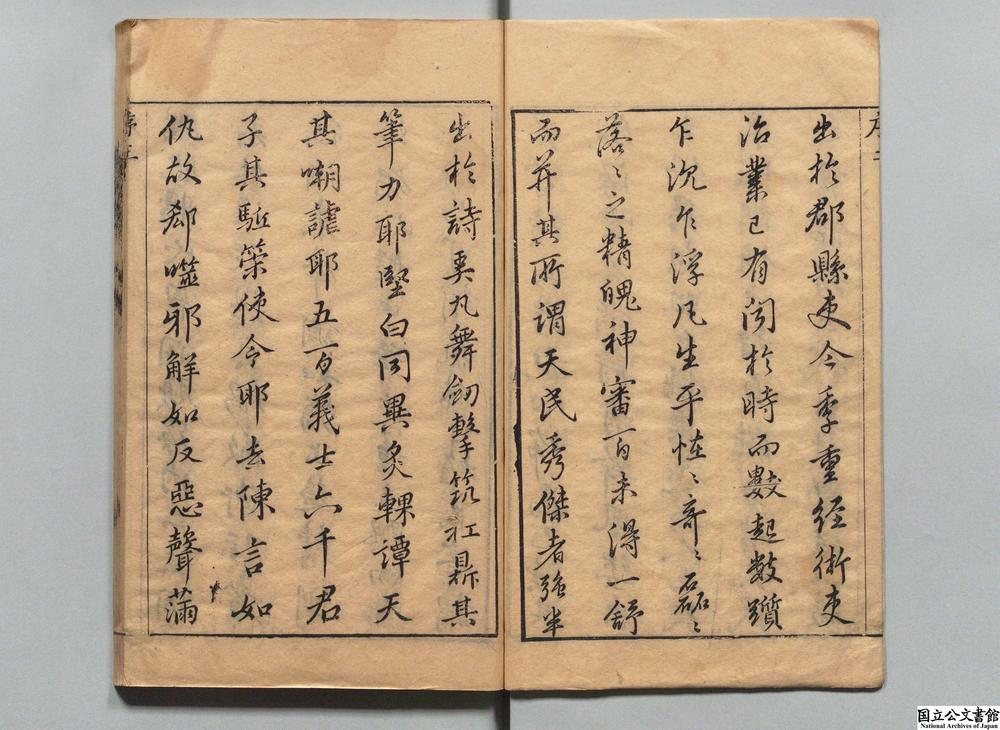 出於郡縣吏今季重経術吏
治業已有聞於時而數起數躓
乍沉乍浮凡生平恠〻奇〻磊〻
落〻之精魄神審百未得一舒
而并其所謂天民秀傑者強半
出於詩弄丸舞劒擊筑扛鼎其
筆力耶堅白同異炙輠譚天
其嘲謔耶五百義士六千君
子其駈策使令耶去陳言如
仇故却噬邪解如反惡聲滿
国立公文書館
National Archives of Japan